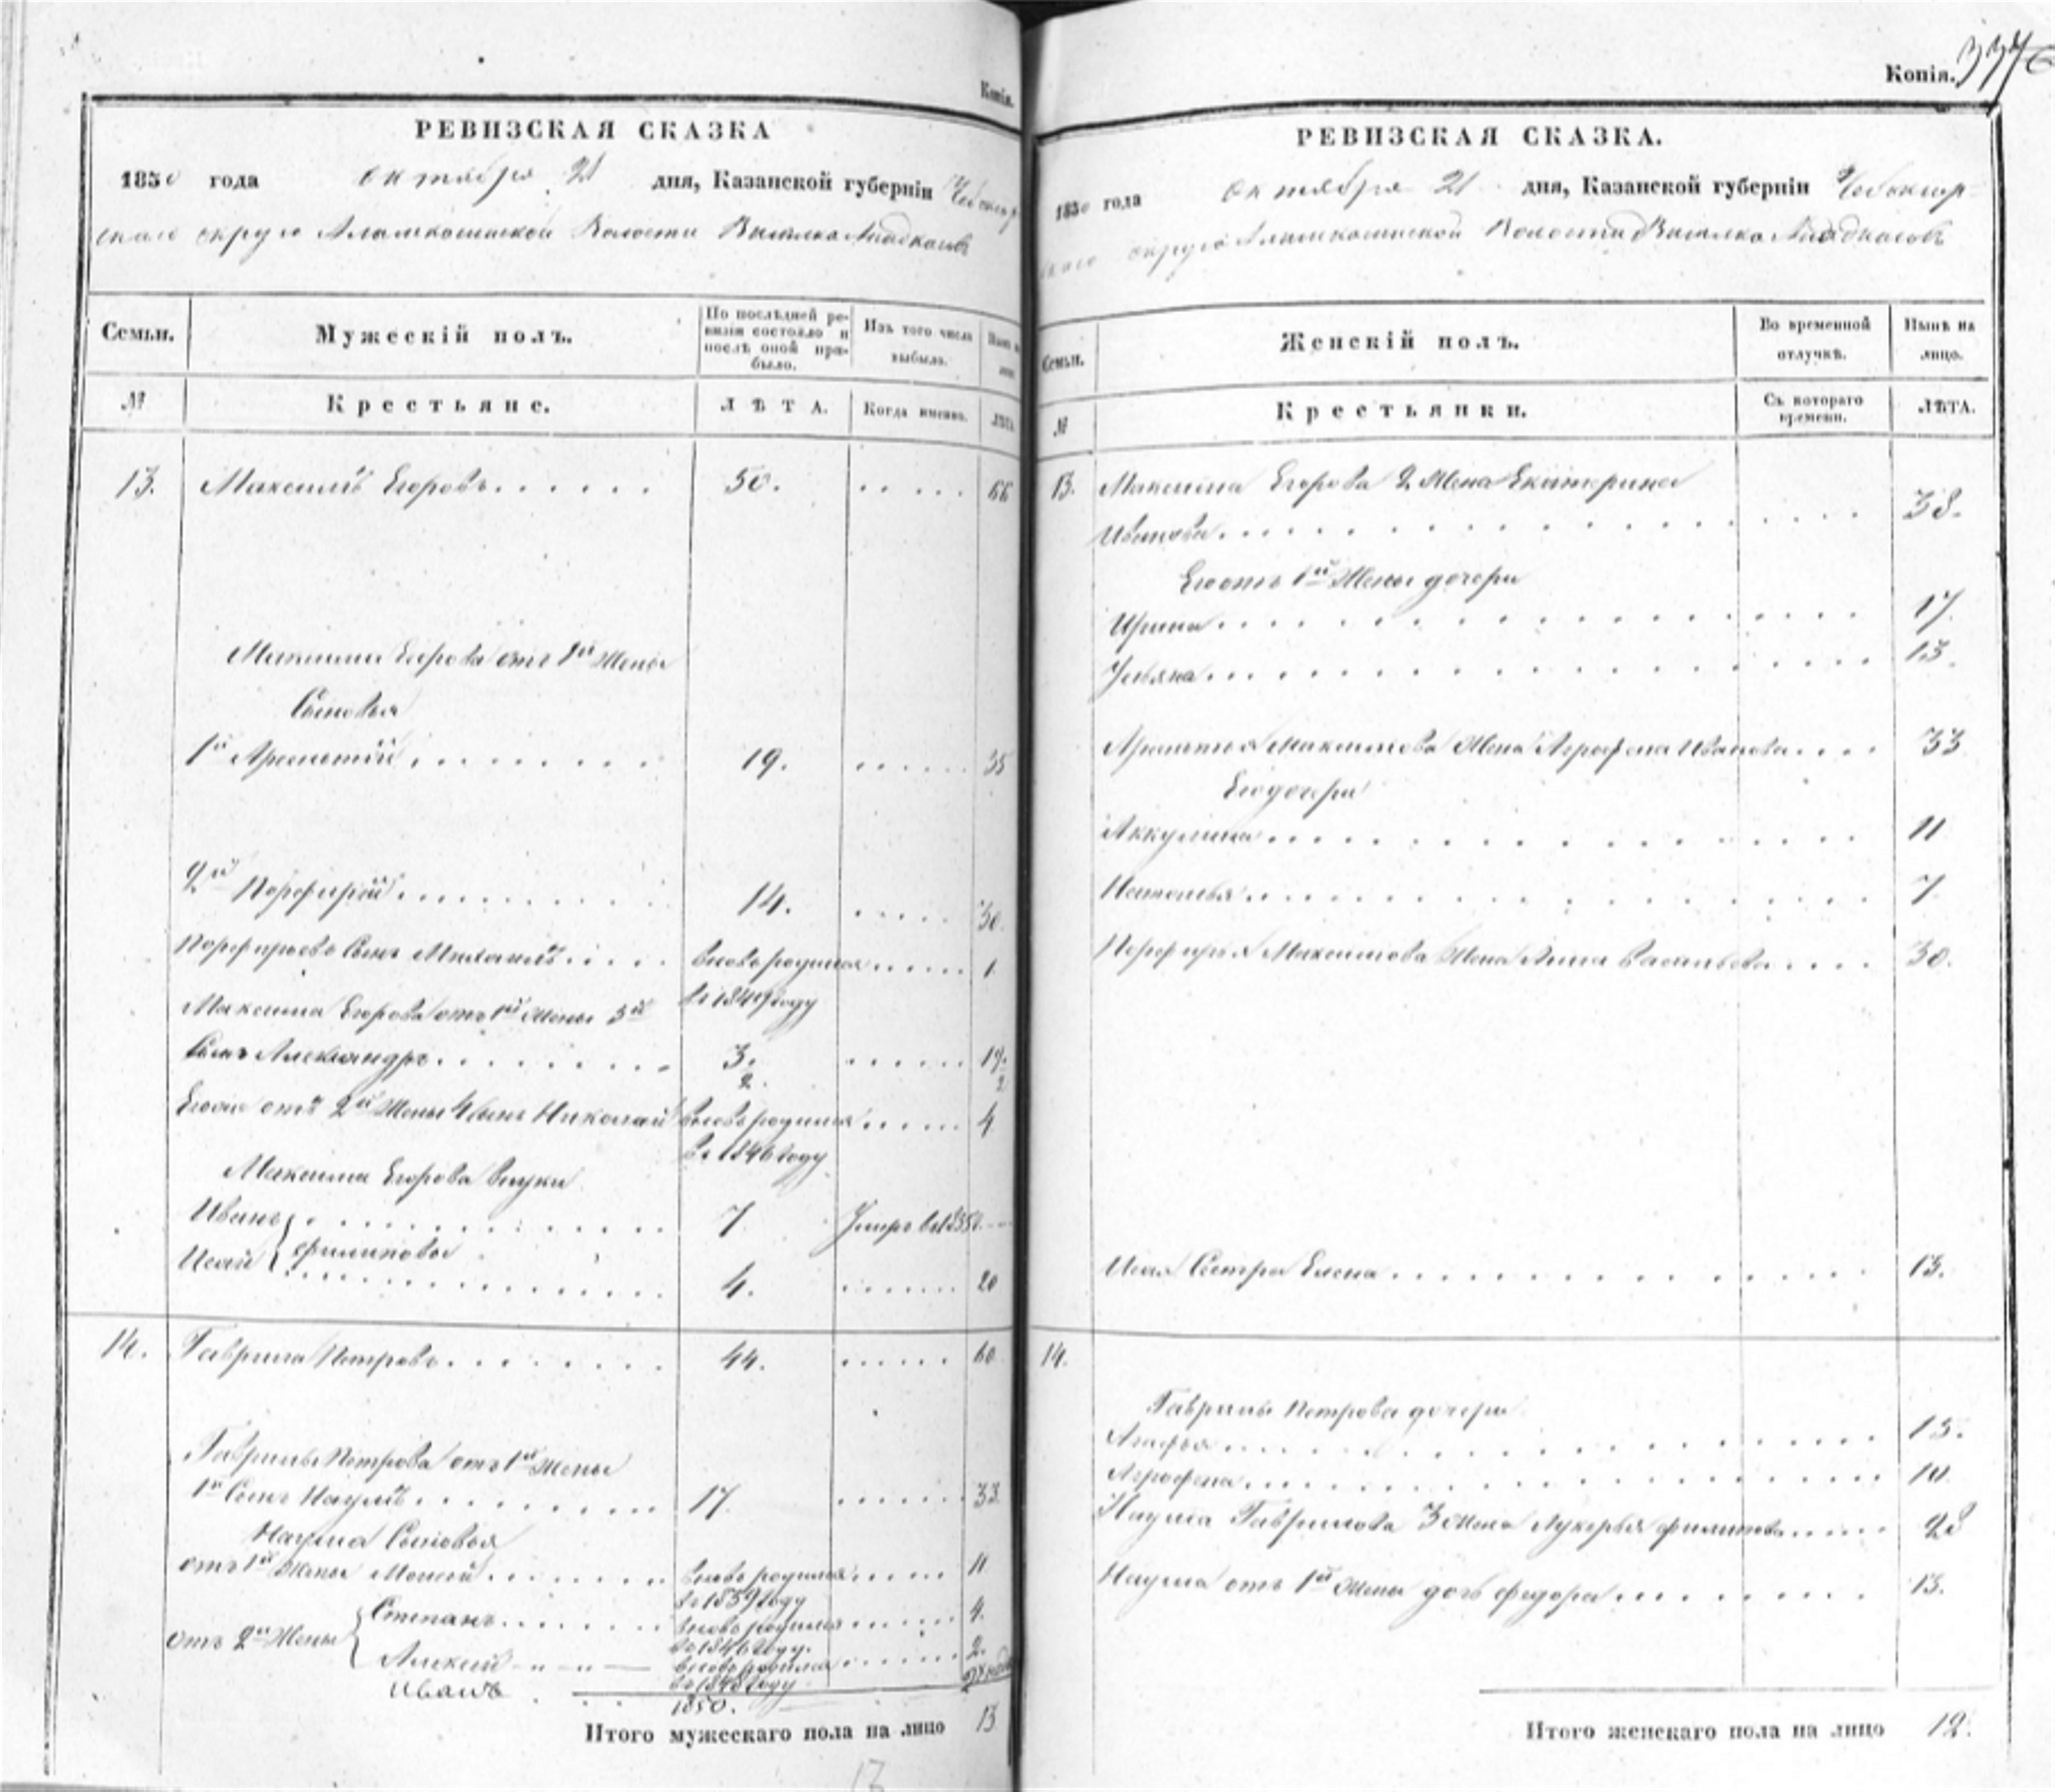 Копія.
РЕВИЗСКАЯ СКАЗКА
1850 года октября 21 дня, Казанской губерніи Чебоксар
скаго округа Волости Выселка
Семьи.
Мужескій полъ.
По послѣдней ре-
визіи состояло и
послѣ оной при-
было.
Изъ того числа
выбыло.
№
Крестьяне.
ЛѢТА.
Когда именно.
ЛѢТА.
13. Максимъ Егоровъ 50. 66
Максима Егорова отъ 1й Жены
Сыновья
1й 19. 35
2й Порфирій 14. 30.
Порфирьевъ Сынъ Михаилъ вновь родился 1
въ 1849 году
Максима Егорова отъ 1й Жены 3й
Сынъ Александръ 3. 19.
2. 2
Егоже отъ 2й Жены 4 сынъ Николай вновь родился 4
въ 1846 году
Максима Егорова внуки
Иванъ 7. Умеръ въ
Филиповы
Исай 4. 20
14. Гаврила Петровъ 44. 60
Гаврилы Петрова отъ 1й Жены
1й Сынъ Наумъ 17. 33.
Наума Сыновья
отъ 1й Жены Моисей вновь родился 11
въ 1839 году
отъ 2й Жены Степанъ вновь родился 4.
въ 1846 году.
Алексей вновь родился 2.
въ 1848 году
Иванъ 1850.
Итого мужескаго пола на лицо 13
13
Копія.
РЕВИЗСКАЯ СКАЗКА.
1850 года октября 21 дня, Казанской губерніи Чебоксар
скаго округа Волости Выселка
Семьи.
Женскій полъ.
Во временной
отлучкѣ.
Нынѣ на
лицо.
№
Крестьянки.
Съ котораго
времени.
ЛѢТА.
13. Максима Егорова 2 Жена Екатерина
Иванова 38.
Его отъ 1й Жены дочери
Ирина 17.
Ульяна 13.
Максимова Жена Агрофена Иванова 33
Его дочери
Аккулина 11
Наталья 7
Порфирья Максимова Жена Анна Васильева 30.
Исая Сестра Елена 13.
14.
Гаврилы Петрова дочери
Агафья 15.
Агрофена 10.
Наума Гаврилова 3 Жена Лукерья Филипова 28
Наума отъ 1й Жены дочь Федора 13.
Итого женскаго пола на лицо 12.